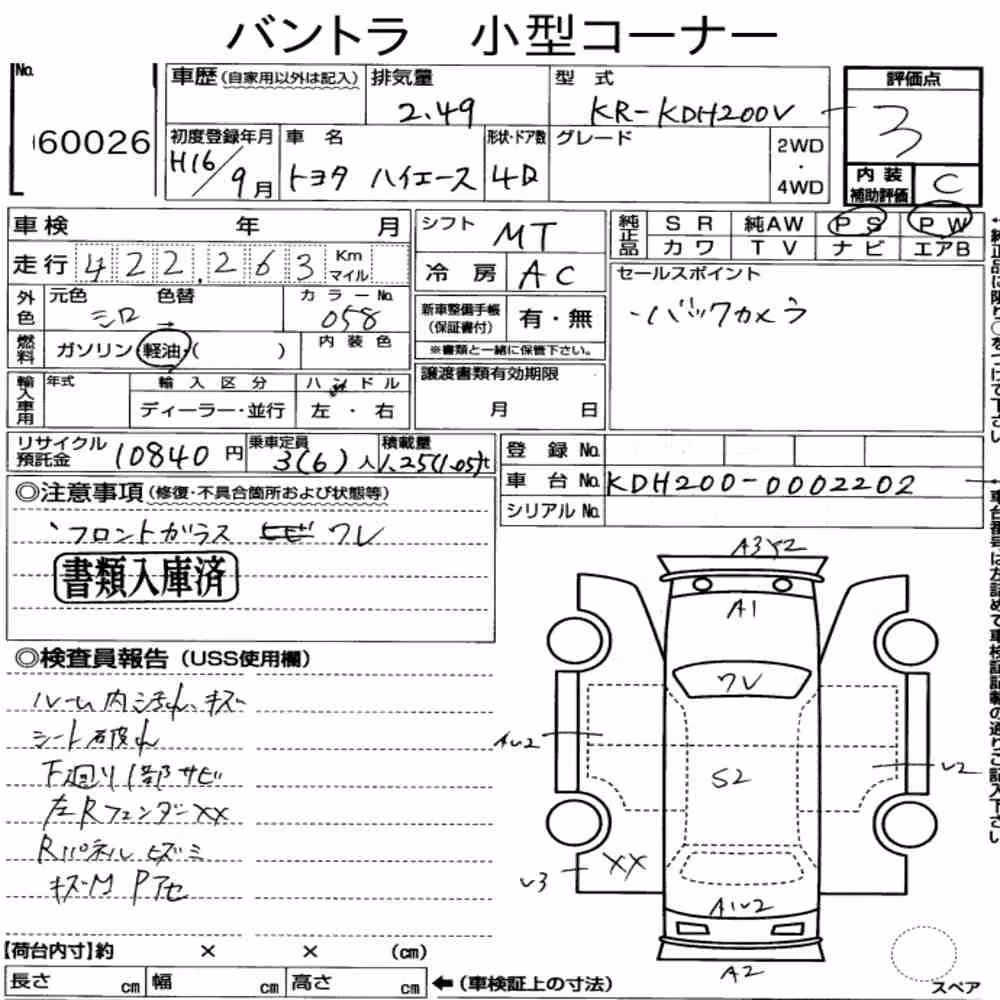 バントラ 小型コーナー
No.
60026
車歴 (自家用以外は記入)
排気量
2.49
型式
KR-KDH200V
評価点
3
初度登録年月
H16/9月
車名
トヨタ ハイエース
形状・ドア数
4D
グレード
2WD
・
4WD
内装
補助評価
C
車検 年 月
走行 422,263 Km マイル
外色
元色 シロ
色替 →
カラーNo.
058
燃料
ガソリン・軽油・( )
内装色
輸入車用
年式
輸入区分
ディーラー・並行
ハンドル
左・右
シフト
MT
冷房
AC
新車整備手帳
(保証書付)
有・無
※書類と一緒に保管下さい。
譲渡書類有効期限
月 日
純正品
SR 純AW PS PW
カワ TV ナビ エアB
セールスポイント
・バックカメラ
←純正品に限り○をつけて下さい
リサイクル
預託金
10840円
乗車定員
3(6)人
積載量
1.25(1.05)t
登録No.
車台No.
KDH200-0002202
シリアルNo.
←車台番号は左詰めで車検証記載の通りご記入下さい
◎注意事項 (修復・不具合箇所および状態等)
・フロントガラス ヒビ ワレ
書類入庫済
◎検査員報告 (USS使用欄)
ルーム内
シート破れ
下廻り1部サビ
左Rフェンダー XX
Rパネル ヒズミ
キズ・M Pアセ
A3Y2
A1
ワレ
AU2
S2
U2
U3
XX
A1U2
A2
【荷台内寸】約 × × (cm)
長さ cm 幅 cm 高さ cm
←(車検証上の寸法)
スペア